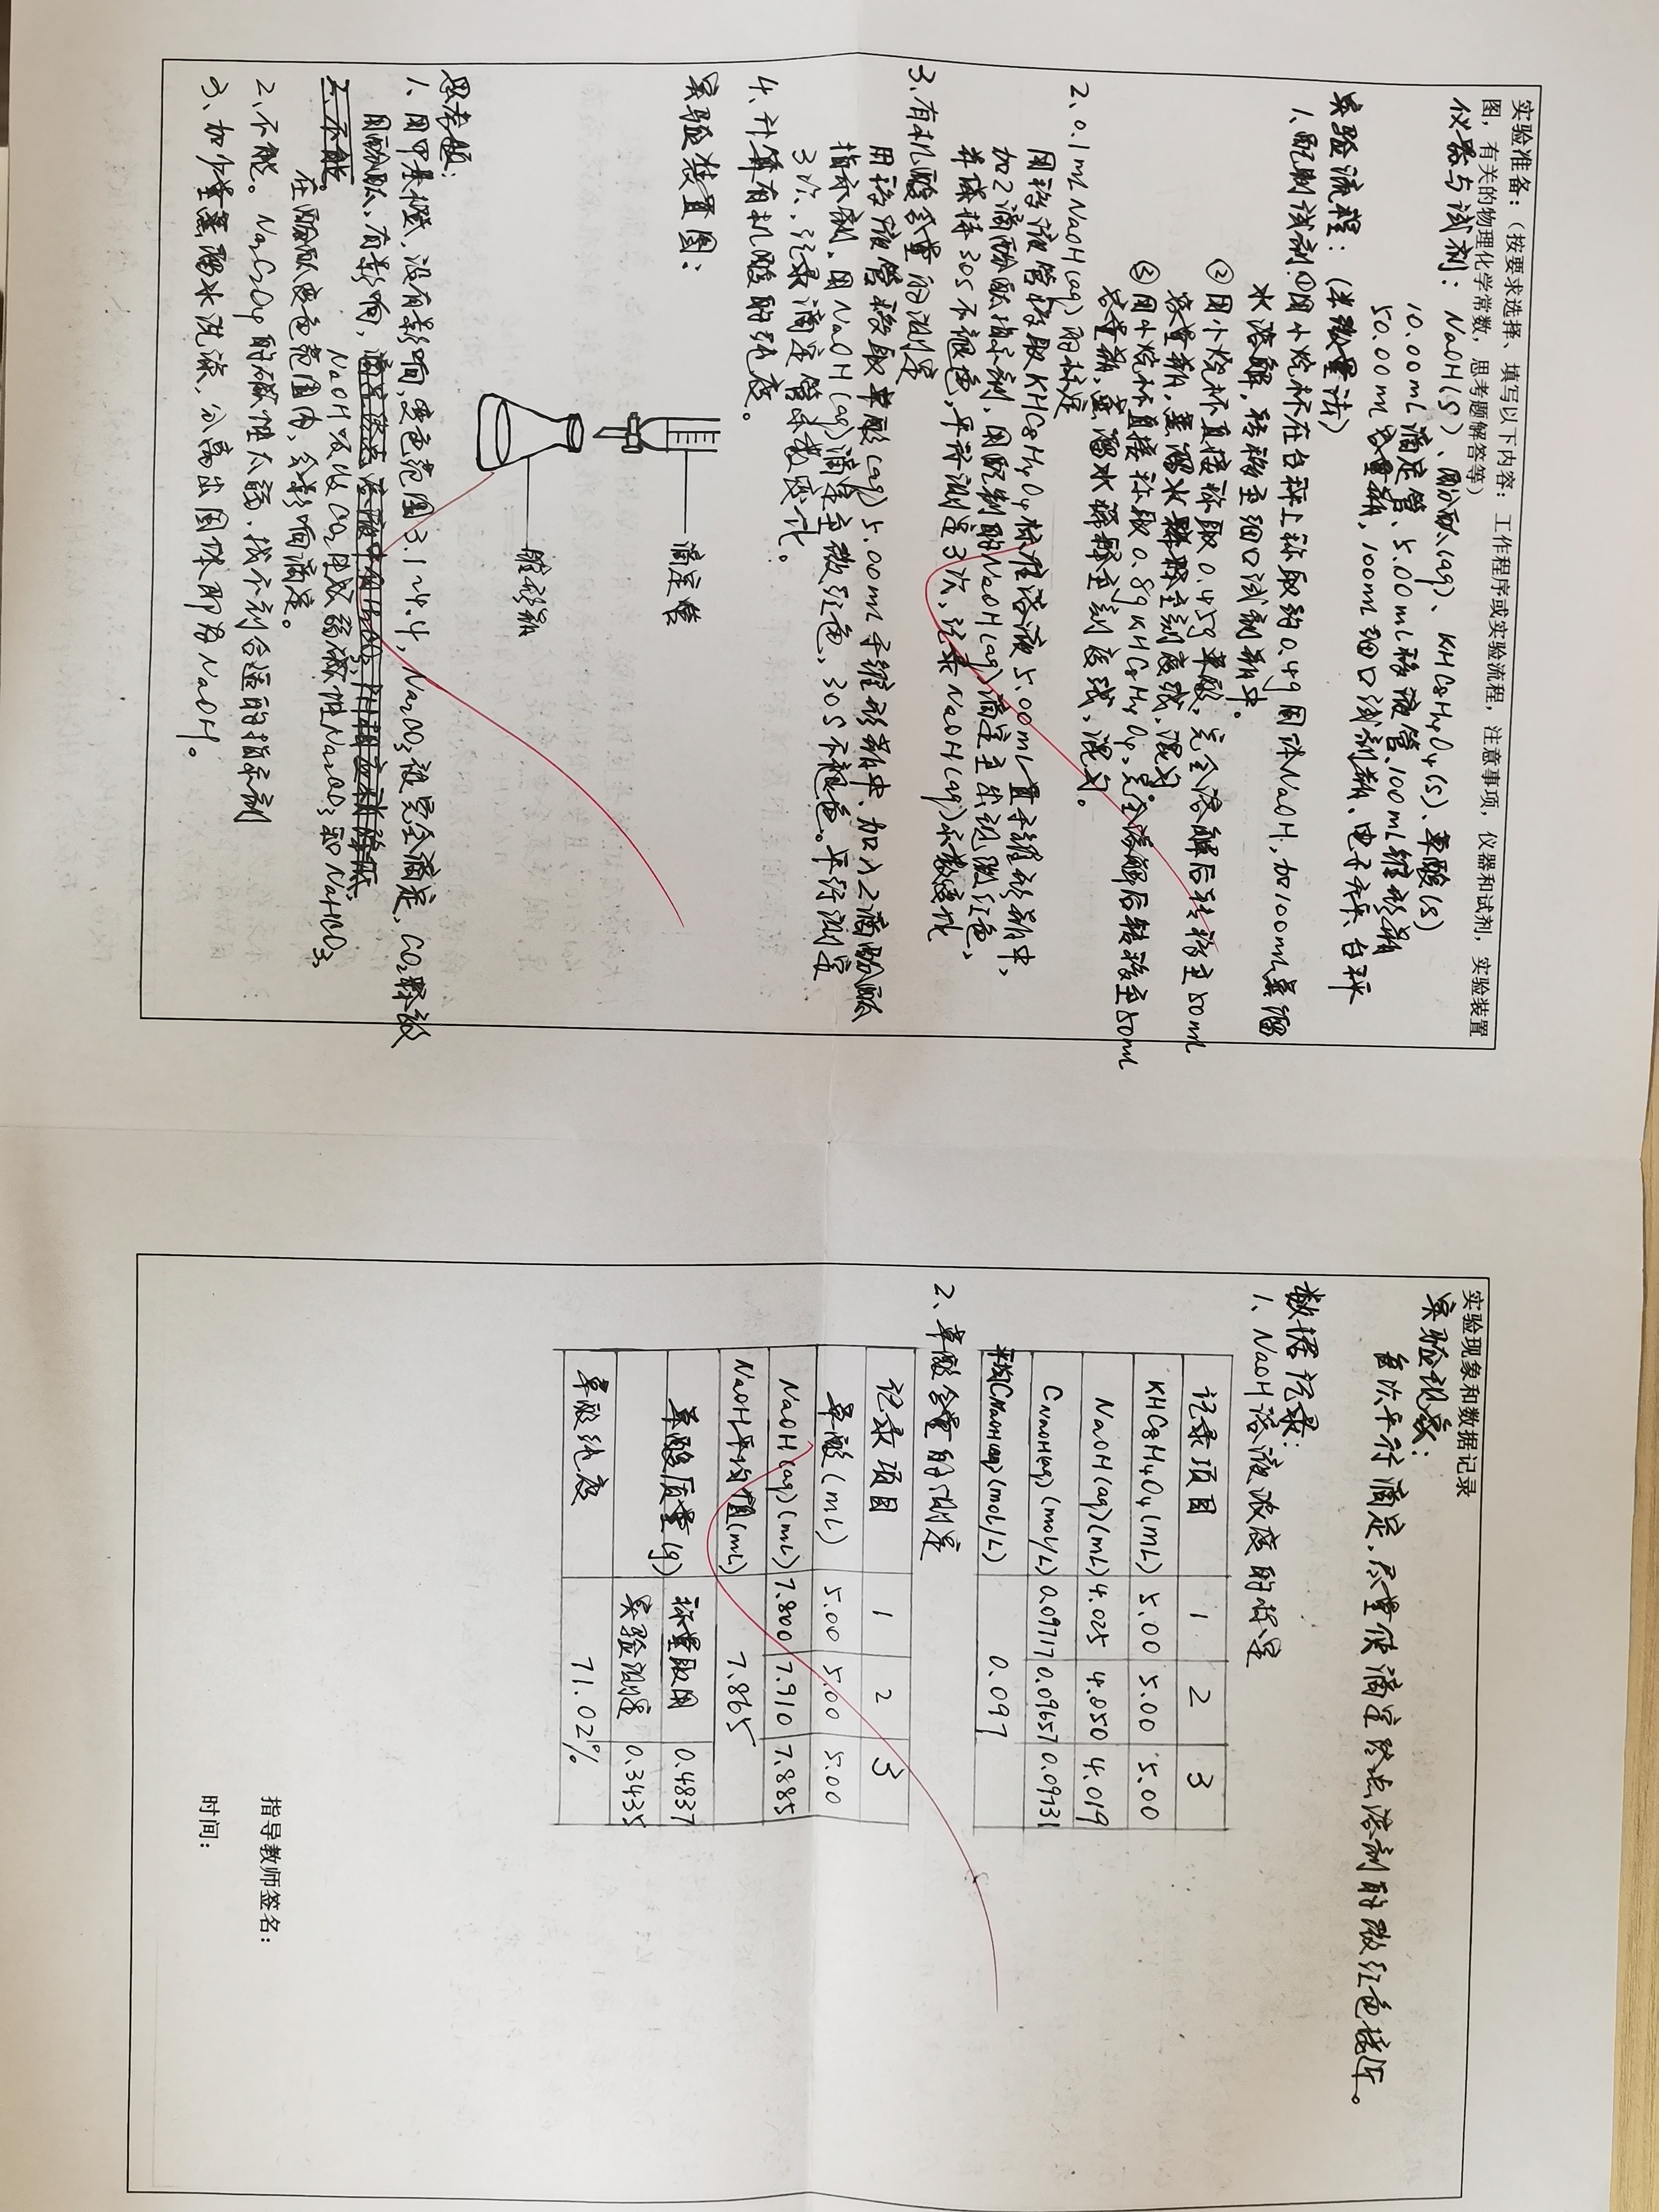 实验准备：（按要求选择、填写以下内容：工作程序或实验流程，注意事项，仪器和试剂，实验装置
图，有关的物理化学常数，思考题解答等）
仪器与试剂：NaOH(s)、酚酞(aq)、KHC8H4O4(s)、草酸(s)
10.00mL滴定管、5.00mL移液管、100mL锥形瓶
50.00mL容量瓶，100mL细口试剂瓶、电子天平、台秤
实验流程：(半微量法)
1、配制试剂：①用小烧杯在台秤上称取约0.4g固体NaOH，加100mL蒸馏
水溶解，转移至细口试剂瓶中。
②用小烧杯直接称取0.45g草酸，完全溶解后转移至50mL
容量瓶，蒸馏水稀释至刻度线，混匀
③用小烧杯直接称取0.8gKHC8H4O4，完全溶解后转移至50mL
容量瓶，蒸馏水稀释至刻度线，混匀。
2、0.1mL NaOH(aq)的标定
用移液管移取KHC8H4O4标准溶液5.00mL置于锥形瓶中，
加2滴酚酞指示剂，用配制的NaOH(aq)滴定至出现微红色，
并保持30s不褪色，平行测定3次，记录NaOH(aq)读数
3、有机酸含量的测定
用移液管移取草酸(aq)5.00mL于锥形瓶中、加入2滴酚酞
指示剂，用NaOH(aq)滴定至微红色，30s不褪色。平行测定
3次，记录滴定管读数
4、计算有机酸的纯度。
实验装置图：
滴定管
锥形瓶
思考题：
1、用甲基橙，没有影响，变色范围3.1~4.4，Na2CO3被完全滴定，CO2释放
用酚酞，有影响，
NaOH吸收CO2生成弱碱性Na2CO3和NaHCO3
2、不能。
在酚酞变色范围内，会影响滴定。
2、不能。Na2C2O4的碱性太弱，找不到合适的指示剂
3、加少量蒸馏水洗涤，分离出固体即为NaOH。
实验现象和数据记录
实验现象：
每次平行滴定，尽量使滴定终点溶剂的微红色接近。
数据记录：
1、NaOH溶液浓度的标定
记录项目 1 2 3
KHC8H4O4(mL) 5.00 5.00 5.00
NaOH(aq)(mL) 4.025 4.050 4.019
CNaOH(aq)(mol/L) 0.09717 0.09657 0.09731
平均CNaOH(aq)(mol/L) 0.097
2、草酸含量的测定
记录项目 1 2 3
草酸(mL) 5.00 5.00 5.00
NaOH(aq)(mL) 7.800 7.910 7.885
NaOH平均值(mL) 7.865
草酸质量(g) 称量取用 0.4837
实验测定 0.3435
草酸纯度 71.02%
指导教师签名：
时间：